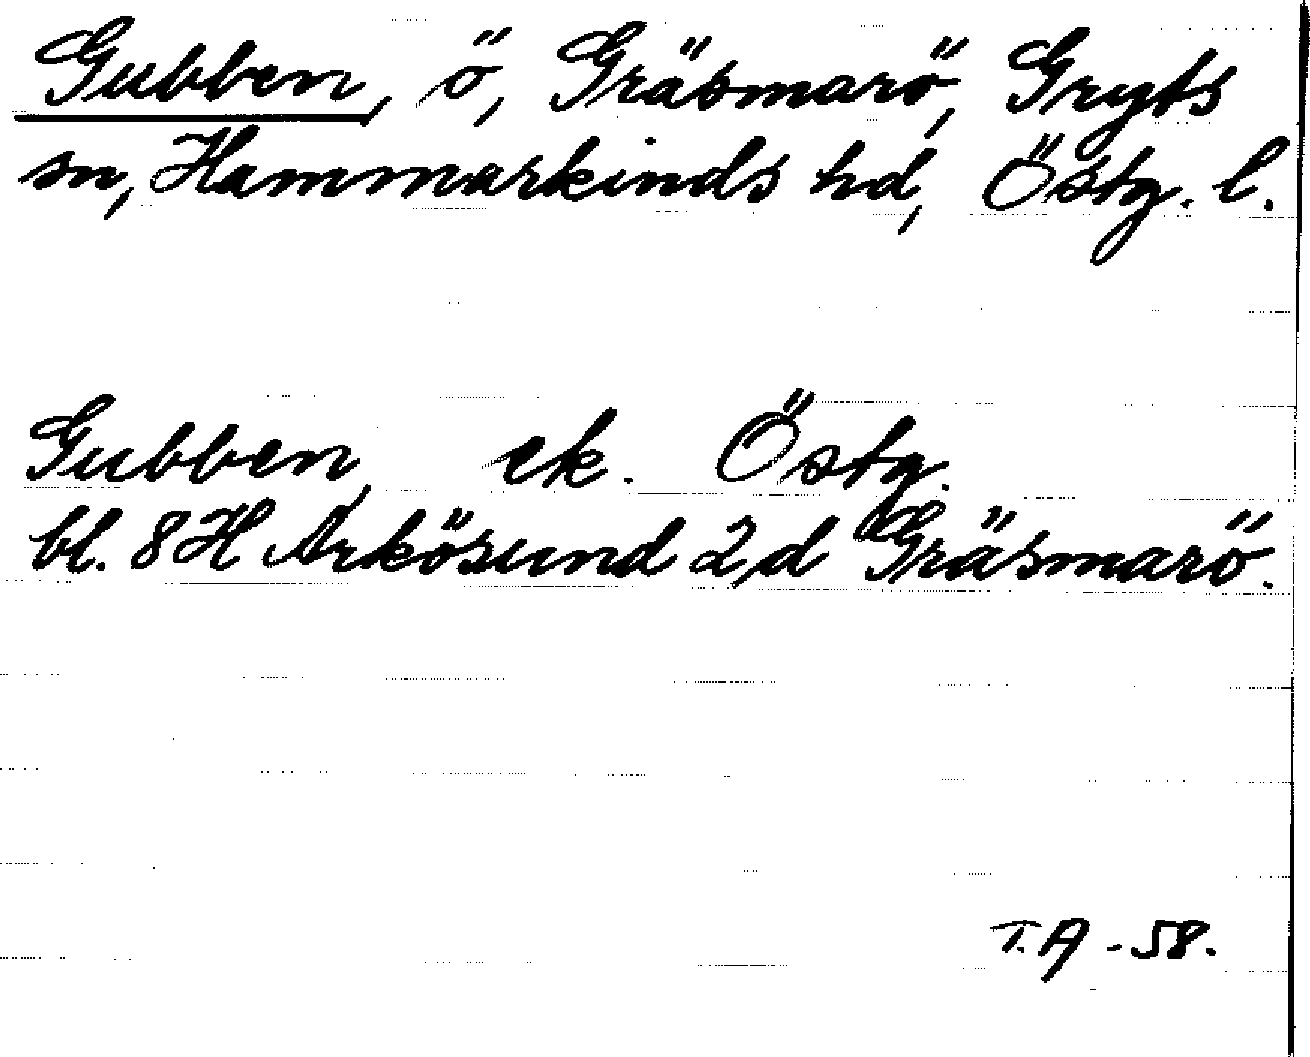 Gubben, ö, Gräsmarö, Gryts
sn, Hammarkinds hd, Östg. l.
Gubben, ek. Östg.
bl. 8H Arkösund 2,d Gräsmarö.
T.A -58.